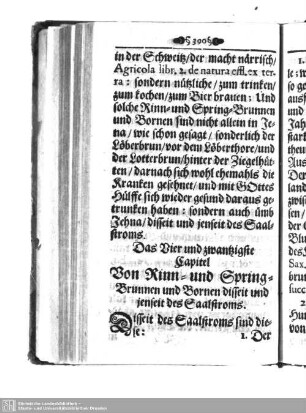 300
in der Schweitz/der macht närrisch/
Agricola libr. 2. de natura effl. ex ter-
ra: sondern nützliche/zum trincken/
zum kochen/zum Bier brauen: Und
solche Rinn- und Spring-Brunnen
und Bornen sind nicht allein in Je-
na/wie schon gesagt/sonderlich der
Löberbrun/vor dem Löberthore/und
der Lotterbrun/hinter der Ziegelhüt-
ten/darnach sich wohl ehemahls die
Krancken gesehnet/und mit GOttes
Hülffe sich wieder gesund daraus ge-
truncken haben: sondern auch ümb
Jehna/disseit und jenseit des Saal-
stroms.
Das Vier und zwantzigste
Capitel
Von Rinn- und Spring-
Brunnen und Bornen disseit und
jenseit des Saalstroms.
Disseit des Saalstroms sind die-
se:
1. Der
1.
le: w
so ge
auss
und
Jah
theu
Aus
Der
land
zwis
sen
der
Blu
des
Sax.
brun
succ
2.
Hun
von